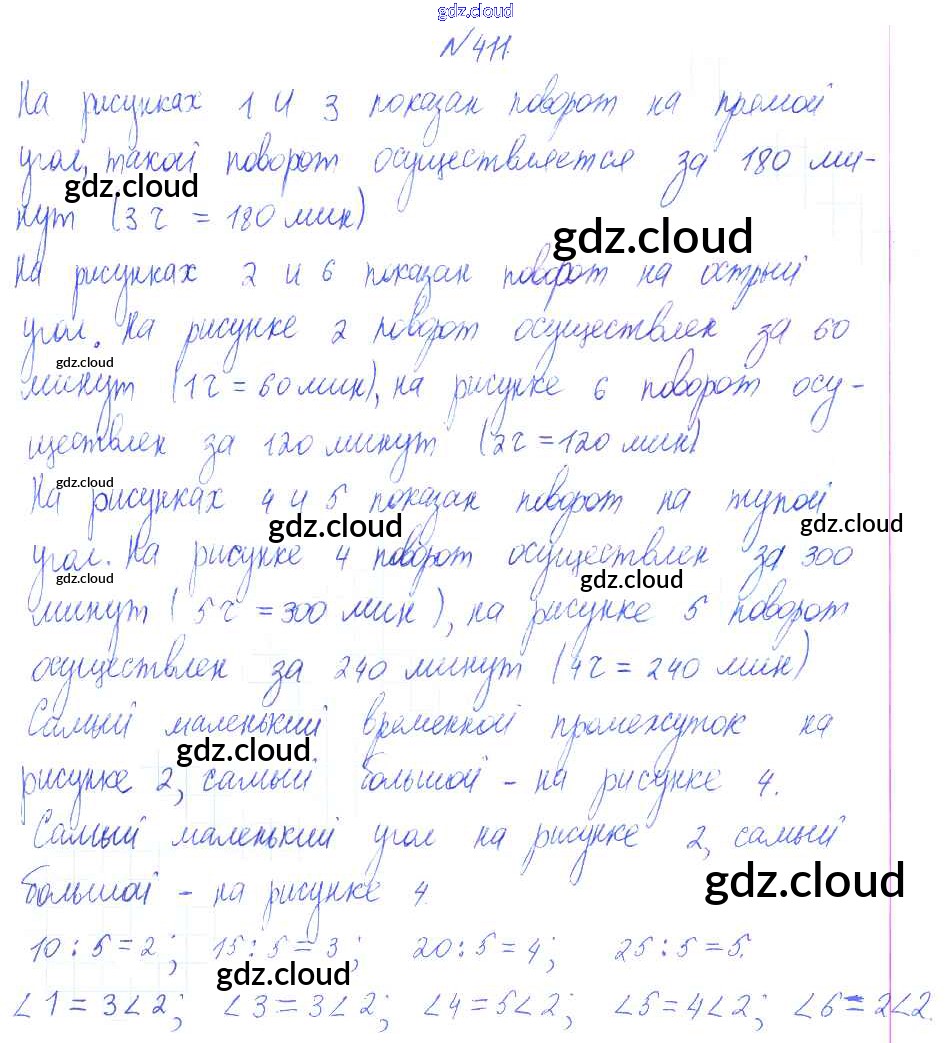 gdz.cloud
№411.
На рисунках 1 и 3 показан поворот на прямой
угол, такой поворот осуществляется за 180 ми-
gdz.cloud
нут (3 ч = 180 мин)
gdz.cloud
На рисунках 2 и 6 показан поворот на острый
угол. На рисунке 2 поворот осуществлен за 60
gdz.cloud
минут (1 ч = 60 мин), на рисунке 6 поворот осу-
ществлен за 120 минут (2 ч = 120 мин)
gdz.cloud
На рисунках 4 и 5 показан поворот на тупой
gdz.cloud
gdz.cloud
угол. На рисунке 4 поворот осуществлен за 300
gdz.cloud
gdz.cloud
минут (5 ч = 300 мин), на рисунке 5 поворот
осуществлен за 240 минут (4 ч = 240 мин)
Самый маленький временной промежуток на
gdz.cloud
рисунке 2, самый большой - на рисунке 4.
Самый маленький угол на рисунке 2, самый
большой - на рисунке 4.
gdz.cloud
10 : 5 = 2; 15 : 5 = 3; 20 : 5 = 4; 25 : 5 = 5.
gdz.cloud
∠1 = 3∠2; ∠3 = 3∠2; ∠4 = 5∠2; ∠5 = 4∠2; ∠6 = 2∠2.